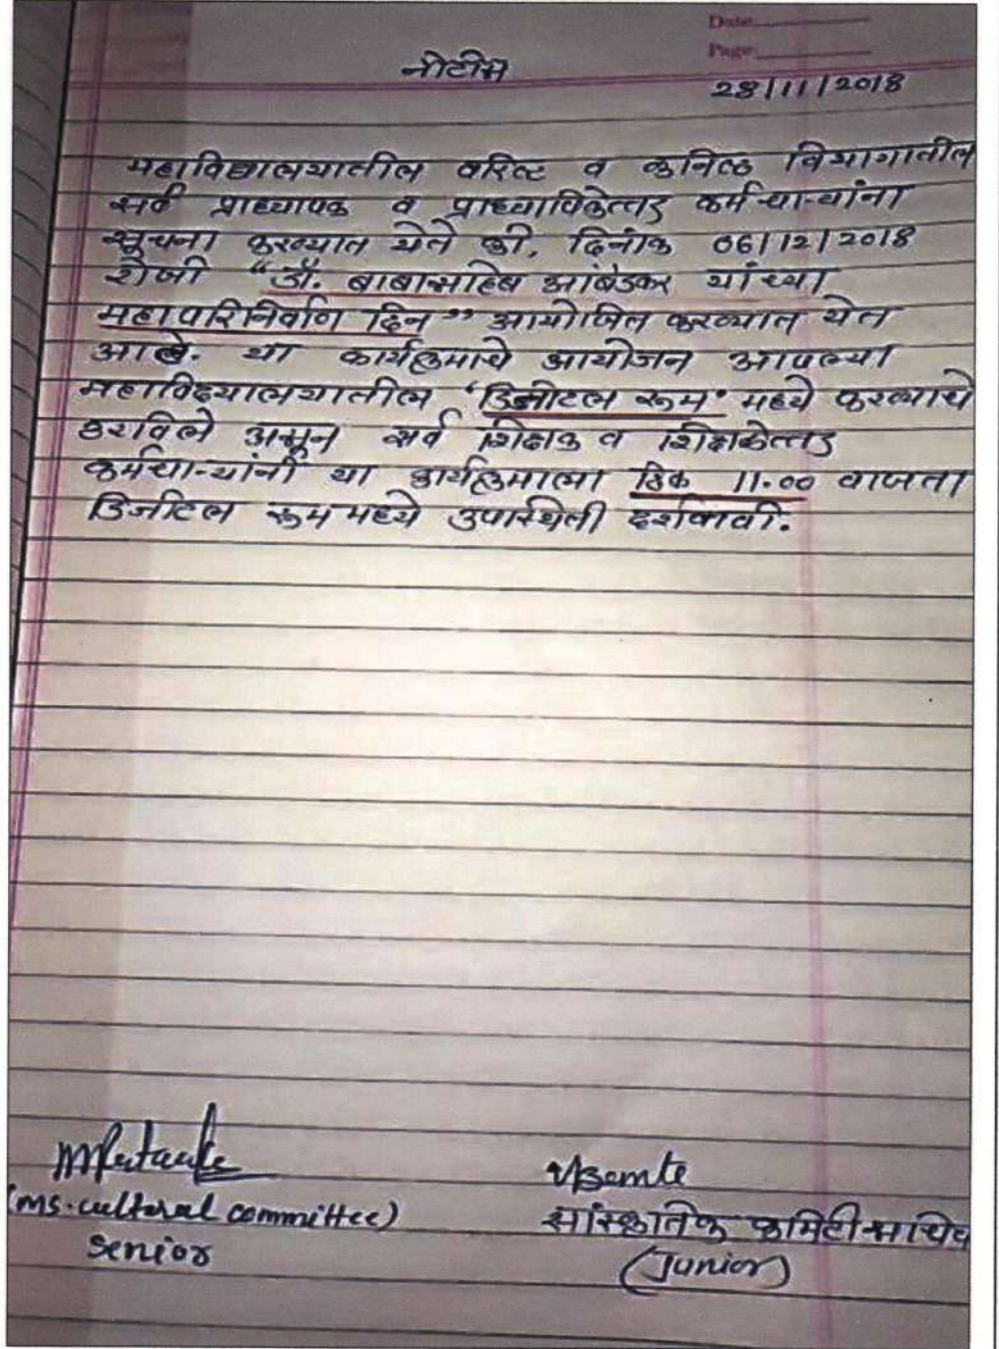 Date
Page
नोटीस
28/11/2018
महाविद्यालयातील वरिष्ट व कनिष्ठ विभागातील
सर्व प्राध्यापक व प्राध्यापिकेत्तर कर्मचाऱ्यांना
सूचना करण्यात येते की, दिनांक 06/12/2018
रोजी "डॉ. बाबासाहेब आंबेडकर यांच्या
महापरिनिर्वाण दिन" आयोजित करण्यात येत
आहे. या कार्यक्रमाचे आयोजन आपल्या
महाविद्यालयातील 'डिजीटल रूम' मध्ये करण्याचे
ठरविले असून सर्व शिक्षक व शिक्षकेत्तर
कर्मचाऱ्यांनी या कार्यक्रमाला ठिक 11.00 वाजता
डिजीटल रूममध्ये उपस्थिती दर्शवावी.
(ms. cultural committee)
senior
सांस्कृतिक कमिटी सचिव
(Junior)